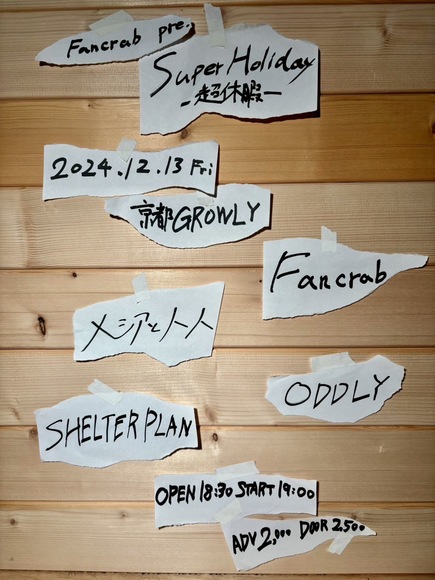 Fancrab pre.
Super Holiday
-超休暇-
2024.12.13 Fri
京都GROWLY
Fancrab
メシアと人人
ODDLY
SHELTER PLAN
OPEN 18:30 START 19:00
ADV 2,000 DOOR 2,500